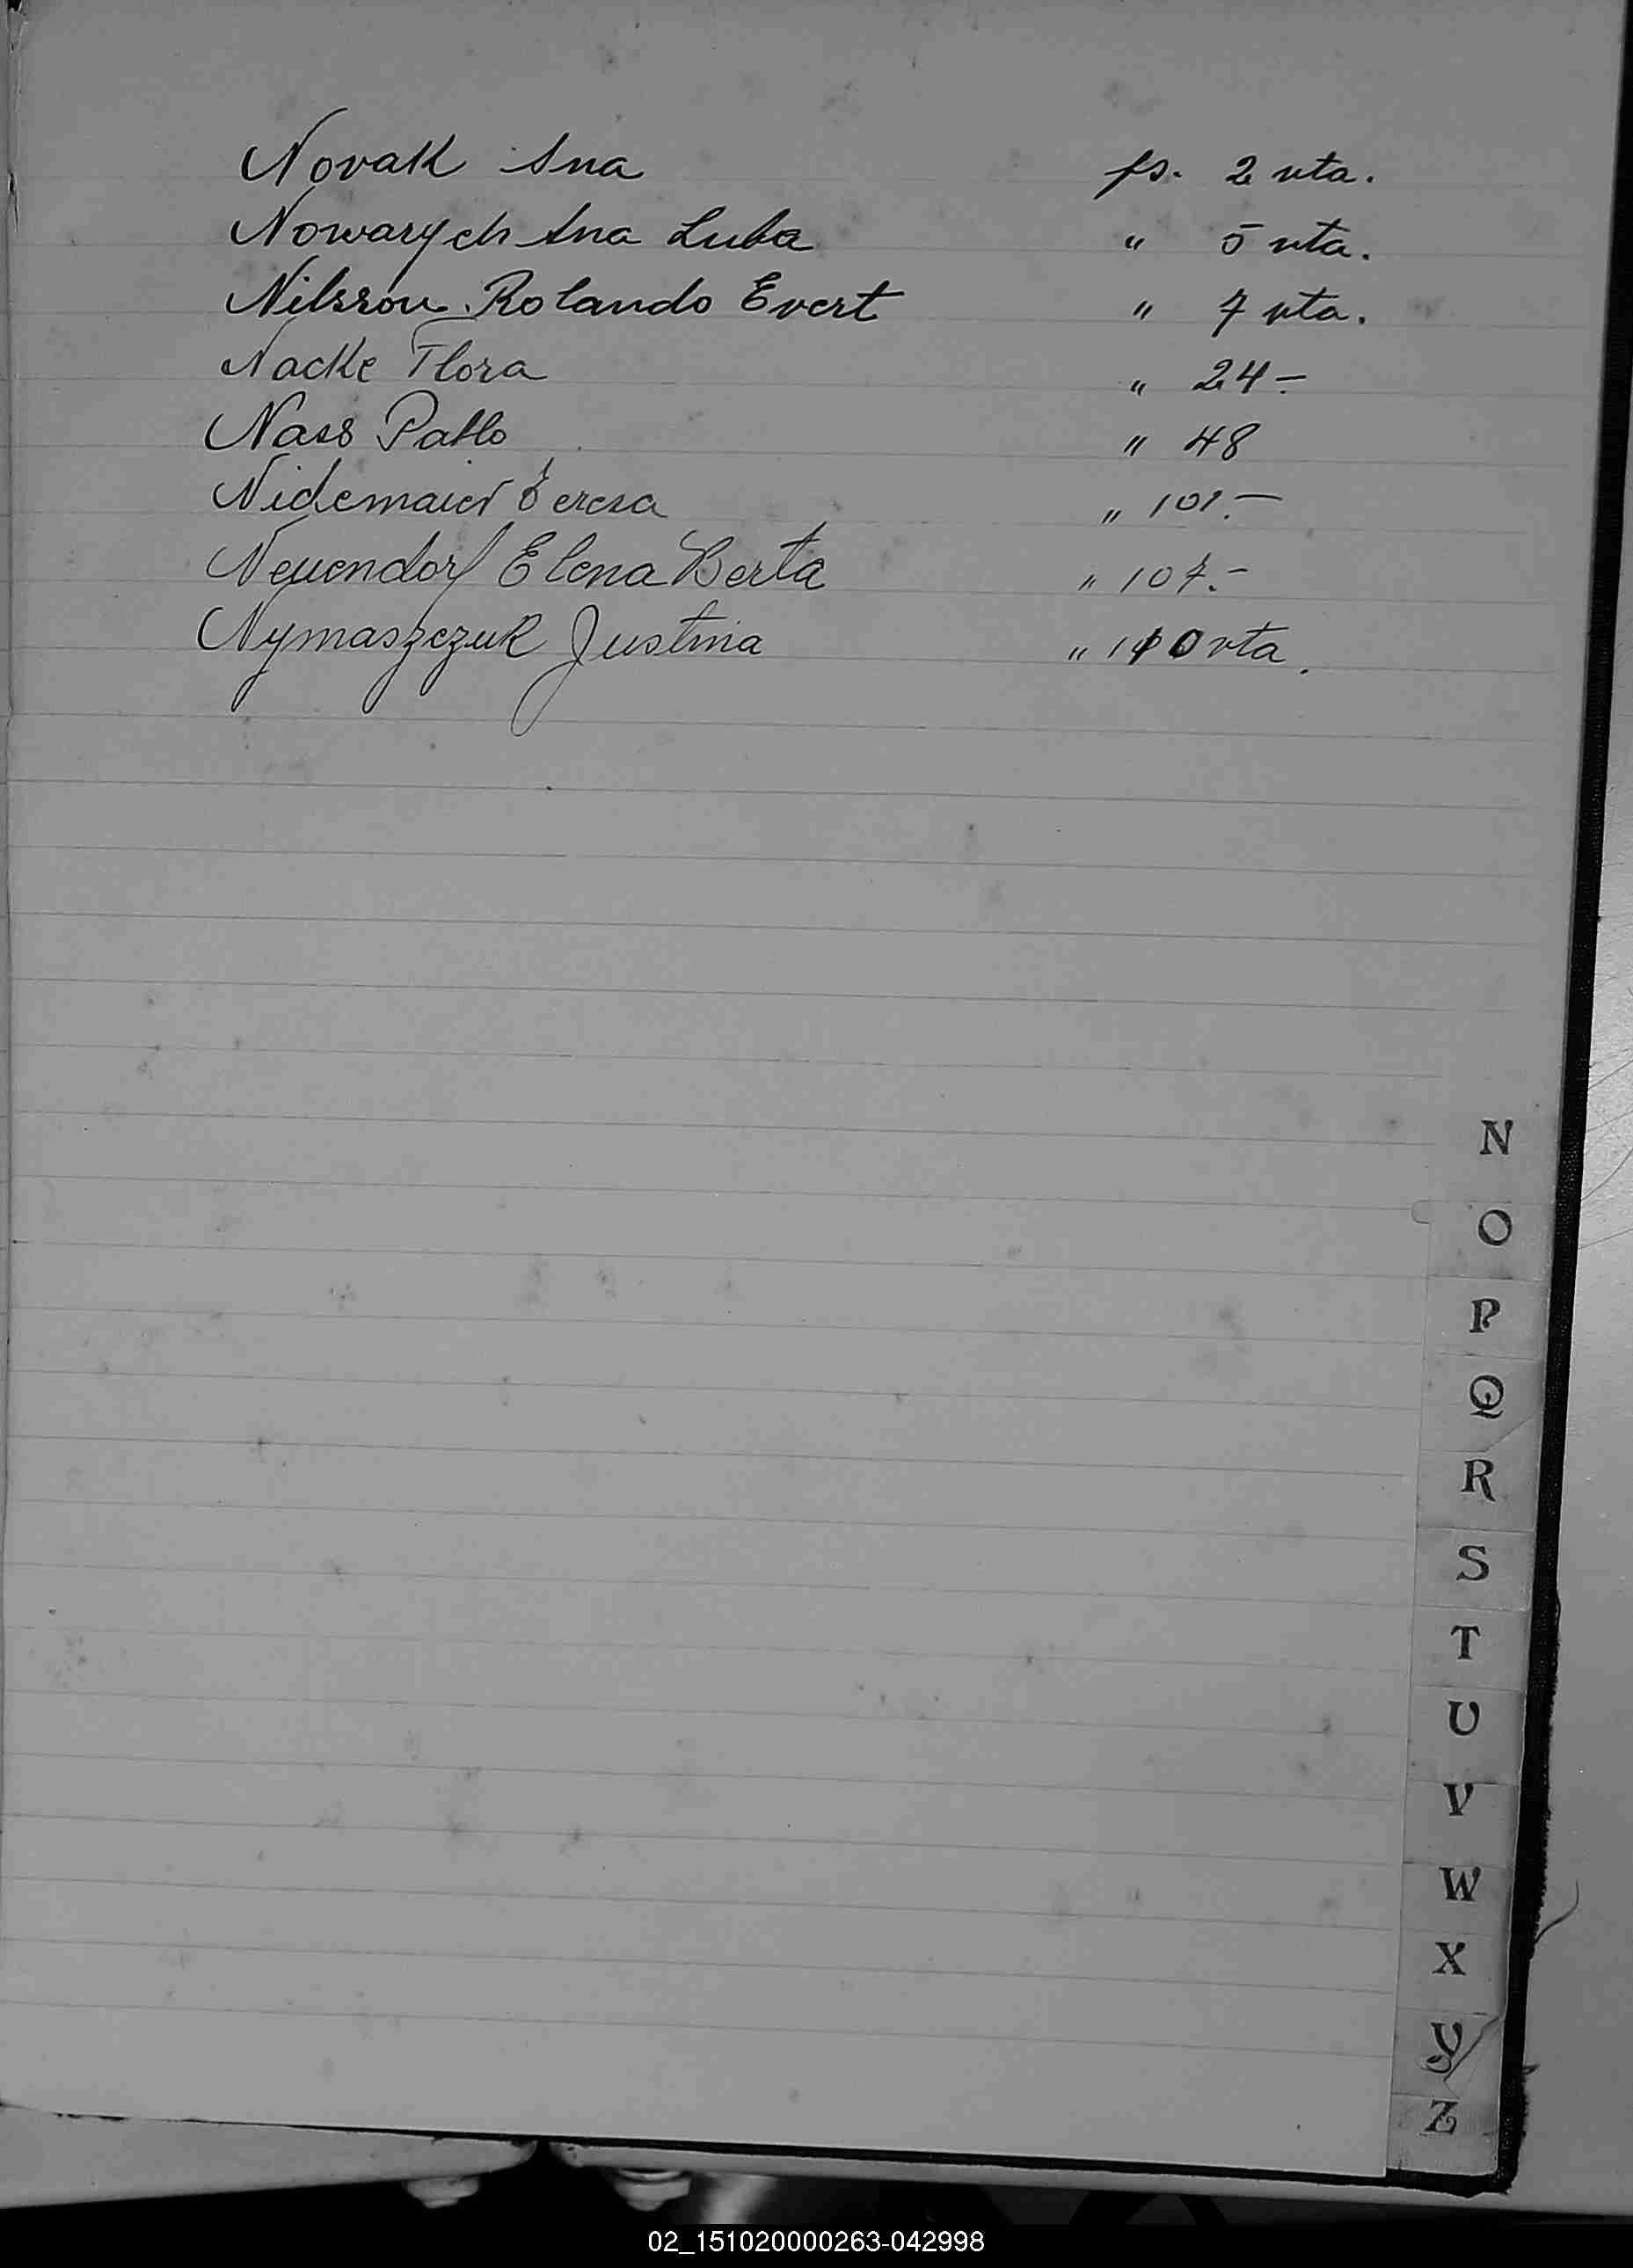 Novak Ana fs. 2 vta.
Nowarych Ana Luba " 5 vta.
Nilsson Rolando Evert " 7 vta.
Nacke Flora " 24-
Nass Pablo " 48
Nidemaier Teresa " 101.-
Neuendorf Elena Berta " 107.-
Nymaszczuk Justina " 110 vta.
N
O
P
Q
R
S
T
U
V
W
X
Y
Z
02_151020000263-042998